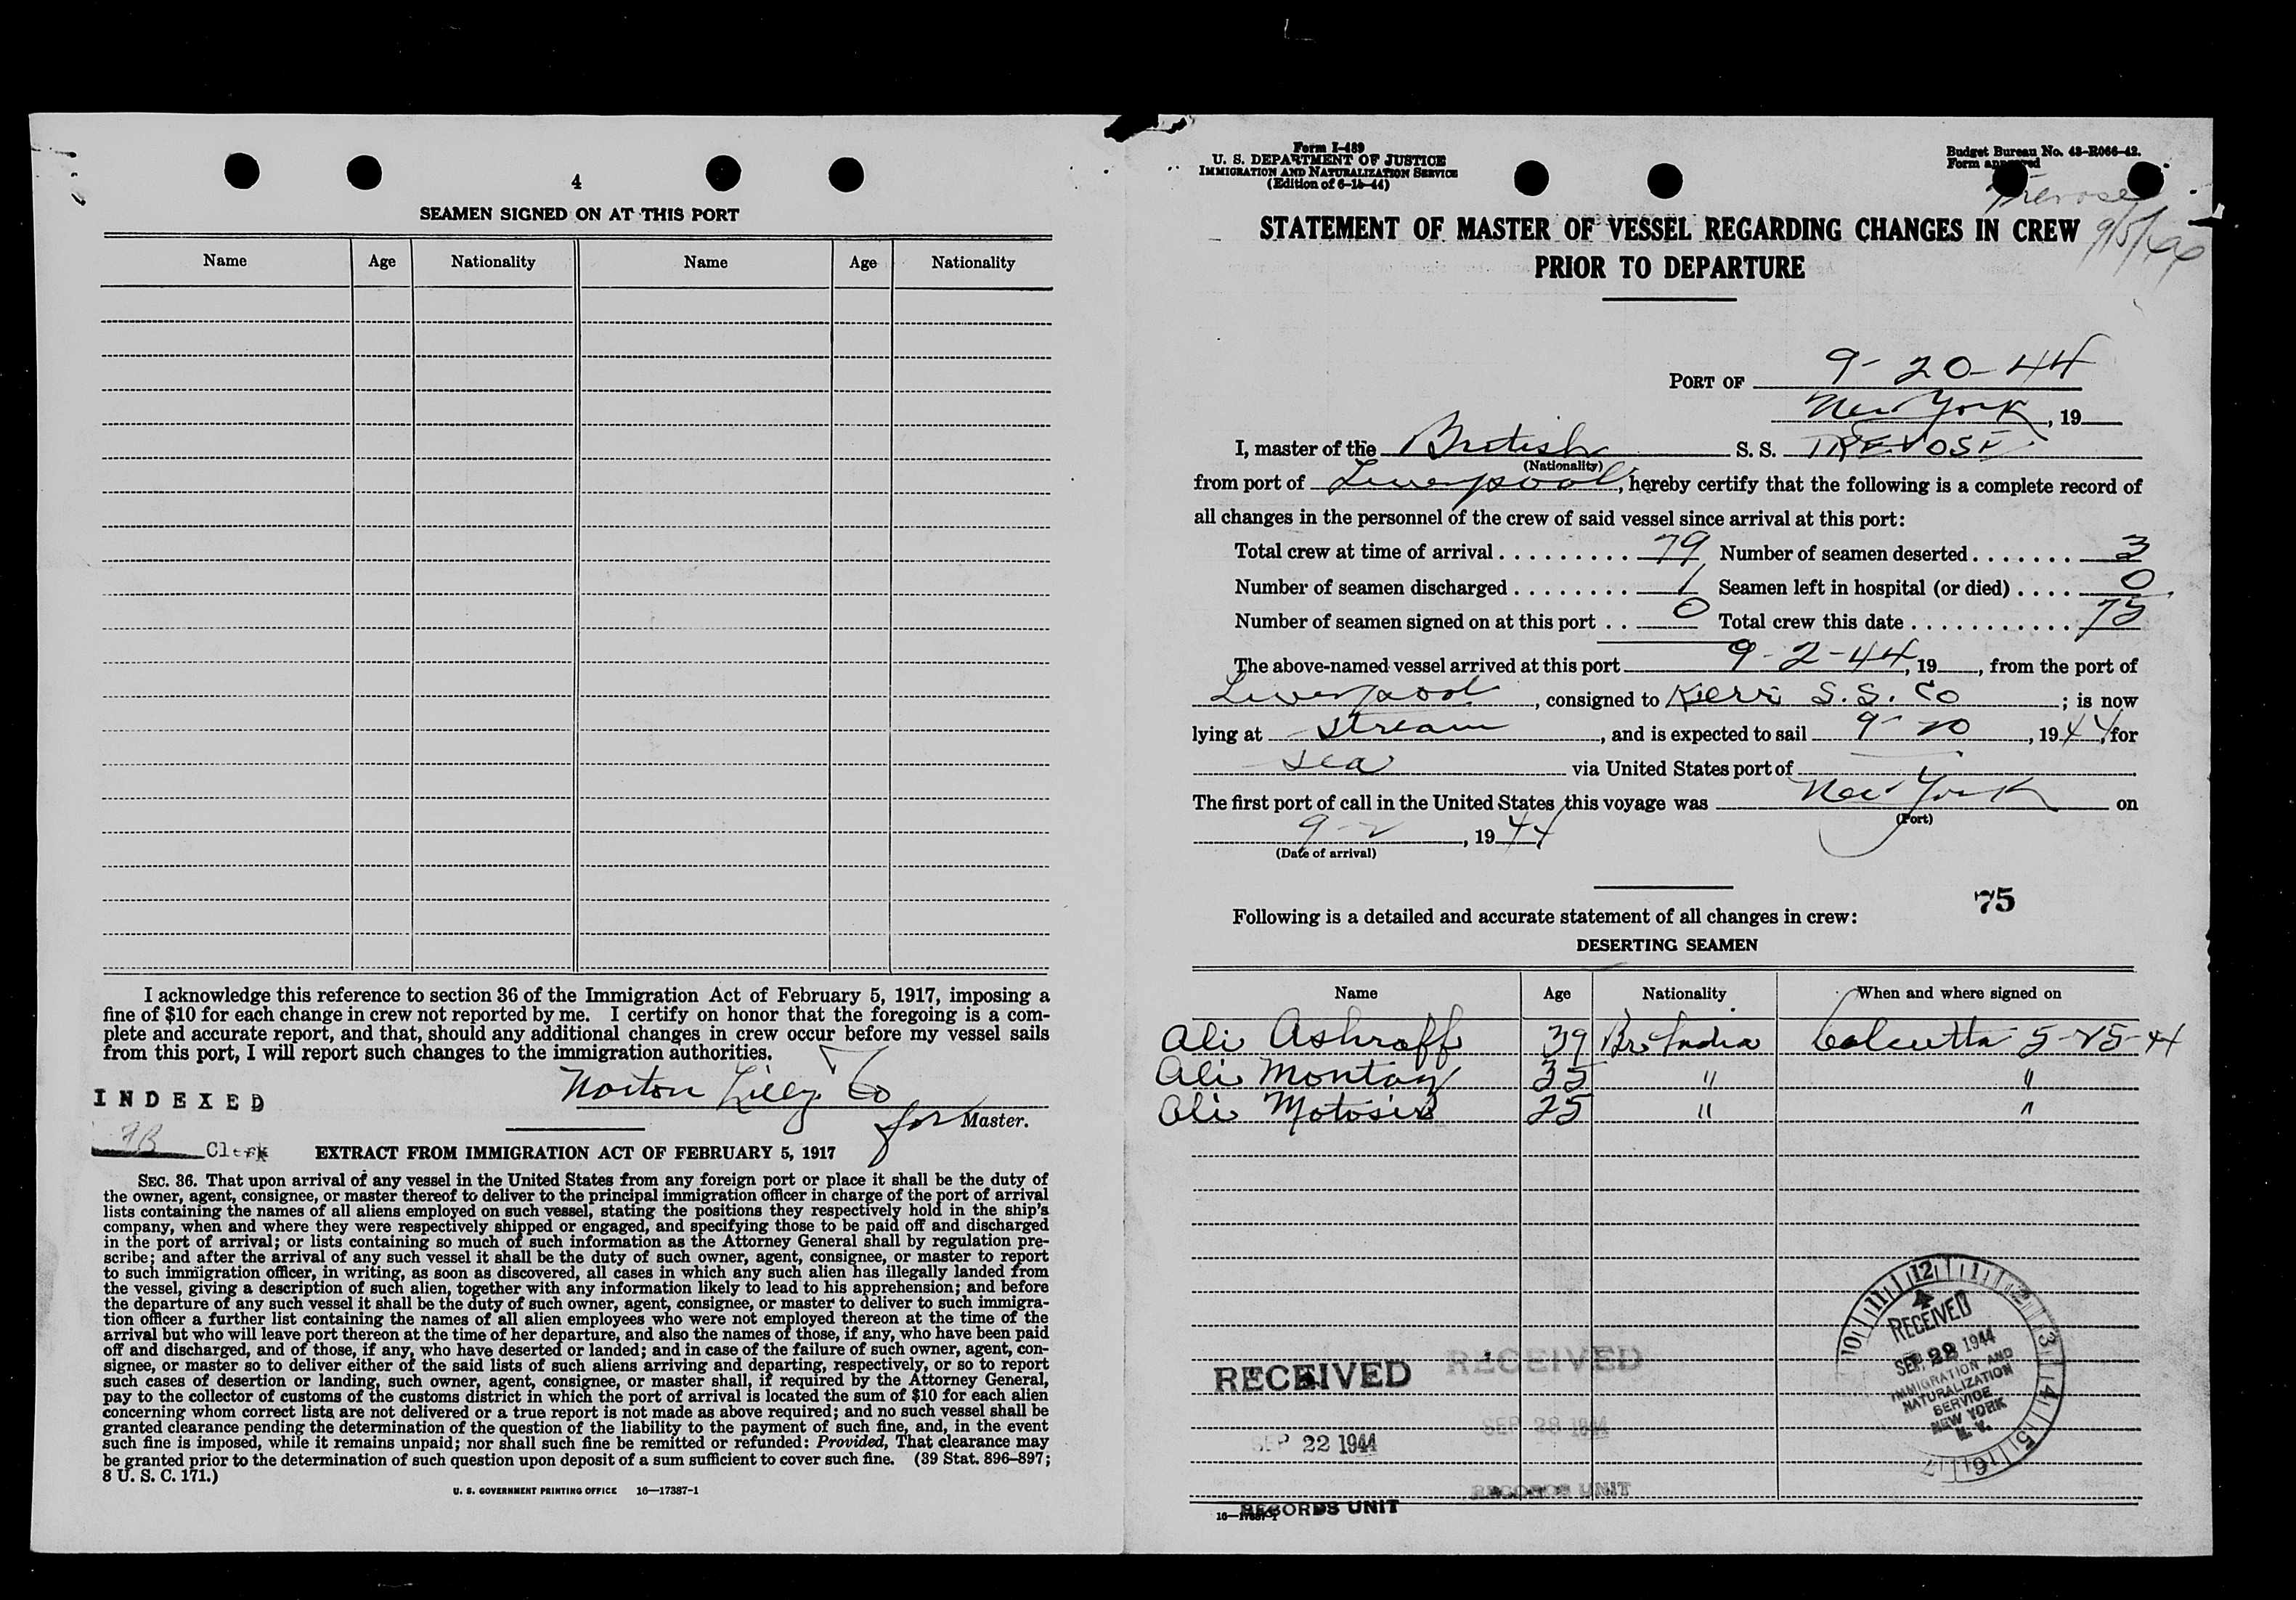 4
SEAMEN SIGNED ON AT THIS PORT
Name Age Nationality Name Age Nationality
I acknowledge this reference to section 36 of the Immigration Act of February 5, 1917, imposing a
fine of $10 for each change in crew not reported by me. I certify on honor that the foregoing is a com-
plete and accurate report, and that, should any additional changes in crew occur before my vessel sails
from this port, I will report such changes to the immigration authorities.
Norton Lilly Co
INDEXED
for Master.
Clerk
EXTRACT FROM IMMIGRATION ACT OF FEBRUARY 5, 1917
SEC. 36. That upon arrival of any vessel in the United States from any foreign port or place it shall be the duty of
the owner, agent, consignee, or master thereof to deliver to the principal immigration officer in charge of the port of arrival
lists containing the names of all aliens employed on such vessel, stating the positions they respectively hold in the ship's
company, when and where they were respectively shipped or engaged, and specifying those to be paid off and discharged
in the port of arrival; or lists containing so much of such information as the Attorney General shall by regulation pre-
scribe; and after the arrival of any such vessel it shall be the duty of such owner, agent, consignee, or master to report
to such immigration officer, in writing, as soon as discovered, all cases in which any such alien has illegally landed from
the vessel, giving a description of such alien, together with any information likely to lead to his apprehension; and before
the departure of any such vessel it shall be the duty of such owner, agent, consignee, or master to deliver to such immigra-
tion officer a further list containing the names of all alien employees who were not employed thereon at the time of the
arrival but who will leave port thereon at the time of her departure, and also the names of those, if any, who have been paid
off and discharged, and of those, if any, who have deserted or landed; and in case of the failure of such owner, agent, con-
signee, or master so to deliver either of the said lists of such aliens arriving and departing, respectively, or so to report
such cases of desertion or landing, such owner, agent, consignee, or master shall, if required by the Attorney General,
pay to the collector of customs of the customs district in which the port of arrival is located the sum of $10 for each alien
concerning whom correct lists are not delivered or a true report is not made as above required; and no such vessel shall be
granted clearance pending the determination of the question of the liability to the payment of such fine, and, in the event
such fine is imposed, while it remains unpaid; nor shall such fine be remitted or refunded: Provided, That clearance may
be granted prior to the determination of such question upon deposit of a sum sufficient to cover such fine. (39 Stat. 896-897;
8 U. S. C. 171.)
U. S. GOVERNMENT PRINTING OFFICE 16—17387-1
Form I-489
U. S. DEPARTMENT OF JUSTICE
IMMIGRATION AND NATURALIZATION SERVICE
(Edition of 6-15-44)
Budget Bureau No. 43-R066-42.
Form approved
Trevose
9/5/44
STATEMENT OF MASTER OF VESSEL REGARDING CHANGES IN CREW
PRIOR TO DEPARTURE
PORT OF 9-20-44
New York, 19
I, master of the British S. S. TREVOSE
(Nationality)
from port of Liverpool, hereby certify that the following is a complete record of
all changes in the personnel of the crew of said vessel since arrival at this port:
Total crew at time of arrival . . . . . . . . . 79 Number of seamen deserted . . . . . . . 3
Number of seamen discharged . . . . . . . . 1 Seamen left in hospital (or died) . . . . 0
Number of seamen signed on at this port . . 0 Total crew this date . . . . . . . . . . . 75
The above-named vessel arrived at this port 9-2-44, 19, from the port of
Liverpool, consigned to Kerr S.S. Co; is now
lying at stream, and is expected to sail 9-20, 1944, for
sea via United States port of
The first port of call in the United States this voyage was New York on
(Port)
9-2, 1944
(Date of arrival)
75
Following is a detailed and accurate statement of all changes in crew:
DESERTING SEAMEN
Name Age Nationality When and where signed on
Ali Ashraff 39 Br India Calcutta 5-25-44
Ali Montaz 35 " "
Ali Motosir 25 " "
RECEIVED
SEP 22 1944
RECORDS UNIT
16—17387-1
RECEIVED
SEP 28 1944
RECORDS UNIT
10 11 12 1 2 3 4 5 6 7
RECEIVED
SEP 28 1944
IMMIGRATION AND
NATURALIZATION
SERVICE
NEW YORK
N. Y.